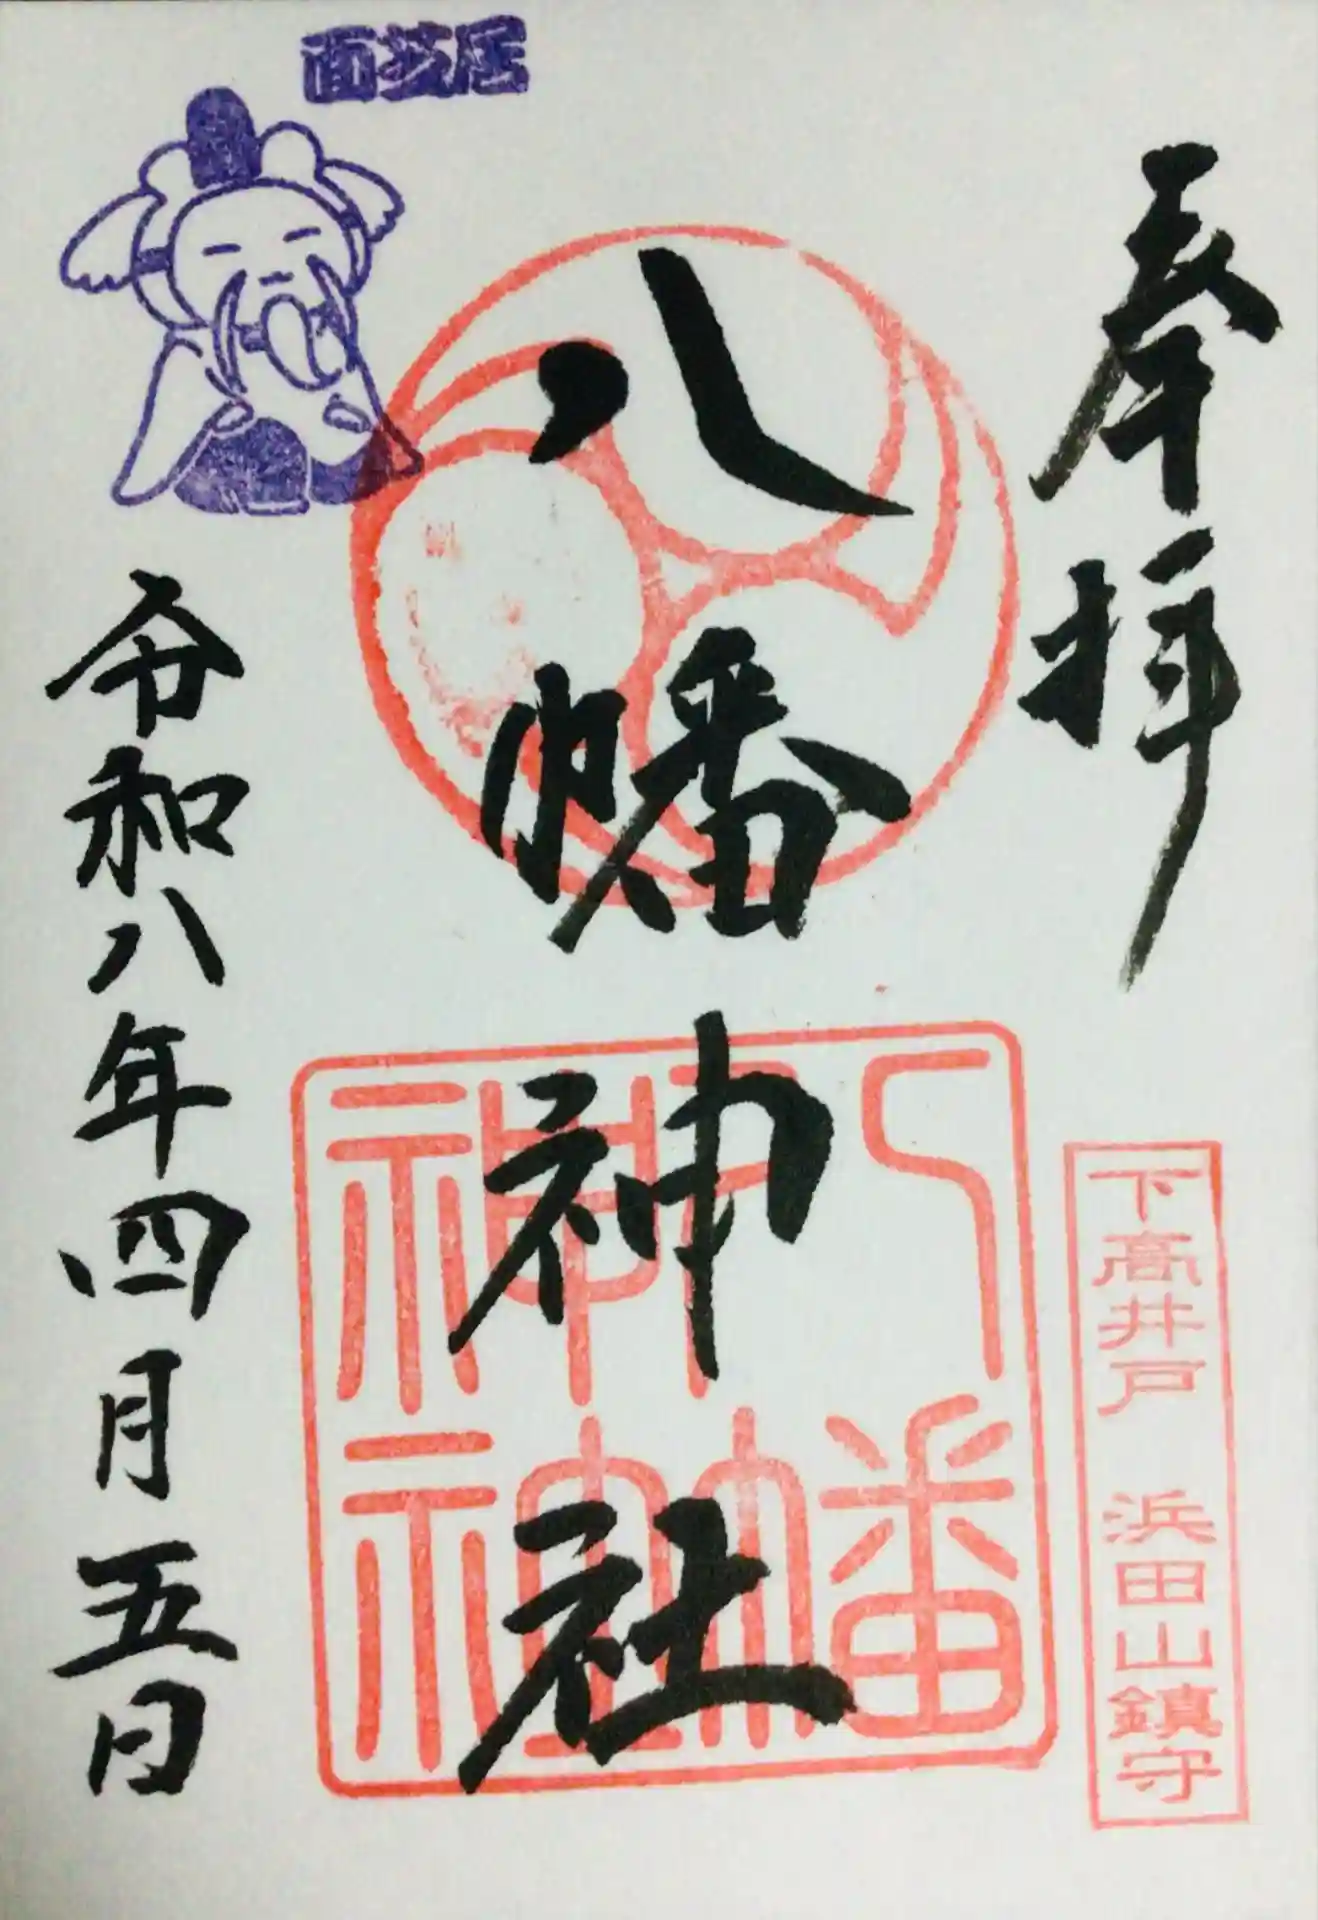 奉拝
下高井戸 浜田山鎮守
八幡神社
八幡神社
面芝居
令和八年四月五日